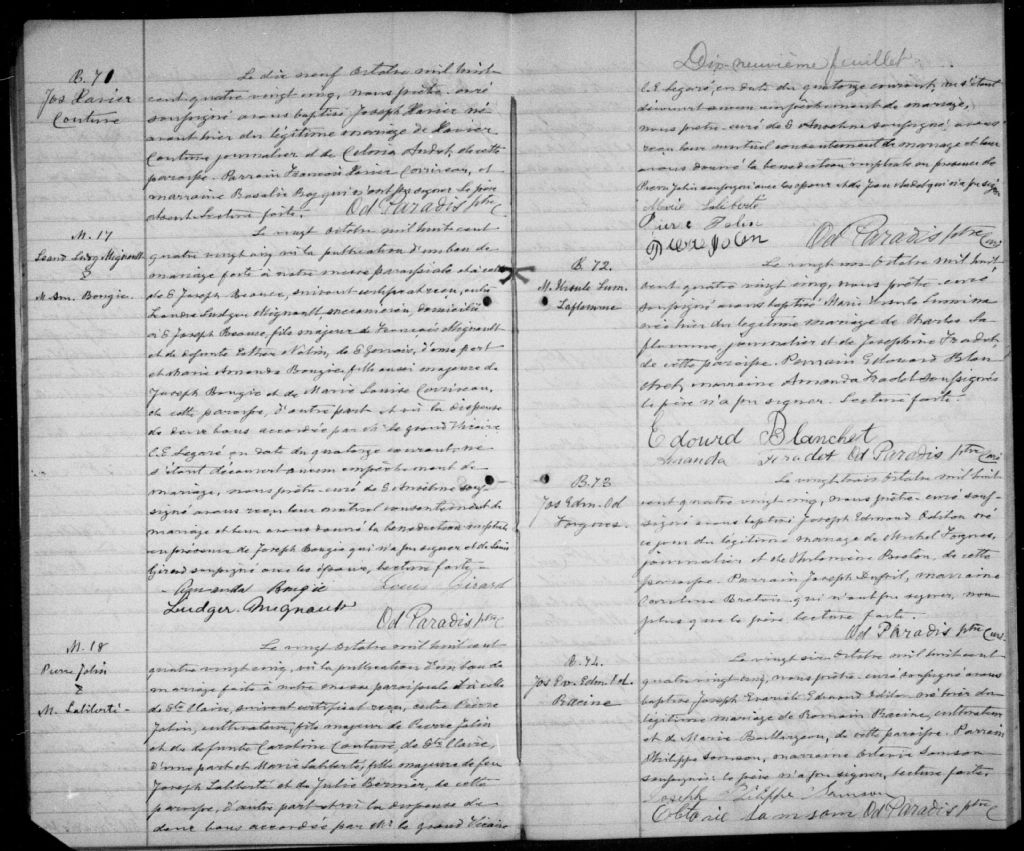 B. 71
Jos Xavier
Couture
Le dix neuf Octobre mil huit
cent quatre vingt cinq, nous prêtre-curé
soussigné avons baptisé Joseph Xavier né
avant hier du légitime mariage de Xavier
Couture journalier et de Celonia Audet, de cette
paroisse. Parrain Francois Xavier Corriveau, et
marraine Rosalie Roy qui n'ont pu signer le père
absent. Lecture faite. Od Paradis ptre
M. 17
Leand Ludg Mignault
&
M. Am. Bougie
Le vingt Octobre mil huit cent
quatre vingt cinq vu la publication d'un ban de
mariage faite à notre messe paroissiale et à celle
de St Joseph Beauce, suivant certificat reçu, entre
Landre Ludger Mignault mecanicien, domicilié
à St Joseph Beauce, fils majeur de Francois Mignault
et de défunte Esther Nolin, de St Gervais, d'une part
et Marie Amanda Bougie fille aussi majeure de
Joseph Bougie et de Marie Louise Corriveau,
de cette paroisse, d'autre part et vu la dispense
de deux bans accordée par Mr le grand Vicaire
C. E. Legaré en date du quatorze courant, ne
s'étant découvert aucun empêchement de
mariage, nous prêtre-curé de St Anselme sous-
signé avons reçu leur mutuel consentement de
mariage et leur avons donné la benediction nuptiale
en présence de Joseph Bougie qui n'a pu signer et de Louis
Girard soussigné avec les époux, lecture faite.
Amanda Bougie Louis Girard
Ludger Mignault
Od Paradis ptre
M. 18
Pierre Jolin
&
M. Laliberté
Le vingt Octobre mil huit cent
quatre vingt cinq, vu la publication d'un ban de
mariage faite à notre messe paroissiale et à celle
de Ste Claire, suivant certificat reçu, entre Pierre
Jolin, cultivateur, fils majeur de Pierre Jolin
et de defunte Caroline Couture, de Ste Claire,
d'une part et Marie Laliberté, fille majeure de feu
Joseph Laliberté et de Julie Bernier, de cette
paroisse, d'autre part et vu la dispense de
deux bans accordée par Mr le grand Vicaire
Dix-neuvième feuillet
C. E. Legaré, en date du quatorze courant, ne s'étant
découvert aucun empêchement de mariage,
nous prêtre-curé de St Anselme soussigné, avons
reçu leur mutuel consentement de mariage et leur
avons donné la benediction nuptiale en présence de
Pierre Jolin soussigné avec les époux et de Jean Audet qui n'a pu signer
Marie Laliberté
Pierre Jolin
Pierre Jolin Od Paradis ptre Curé
B. 72.
M. Ursule Lum.
Laflamme
Le vingt un Octobre mil huit
cent quatre vingt cinq, nous prêtre-curé
soussigné avons baptisé Marie Ursule Lumina
née hier du legitime mariage de Charles La-
flamme, journalier et de Josephine Fradet,
de cette paroisse. Parrain Edouard Blan-
chet, marraine Amanda Fradet soussignés
le père n'a pu signer. Lecture faite.
Edourd Blanchet
Amanda Fradet Od Paradis ptre Curé
B. 73
Jos Edm. Od
Forgues.
Le vingt trois Octobre mil huit
cent quatre vingt cinq, nous prêtre-curé sous-
signé avons baptisé Joseph Edmond Odilon né
ce jour du legitime mariage de Michel Forgues,
journalier et de Philomène Roulon, de cette
paroisse. Parrain Joseph Dufril, marraine
Caroline Breton qui n'ont pu signer, non
plus que le père, lecture faite.
Od Paradis ptre Curé
B. 74.
Jos Ev. Edm. Od.
Racine
Le vingt six Octobre mil huit cent
quatre vingt cinq, nous prêtre-curé soussigné avons
baptisé Joseph Evariste Edmond Odilon né hier du
légitime mariage de Romain Racine, cultivateur
et de Marie Baillargeon, de cette paroisse. Parrain
Philippe Samson, marraine Octavie Samson
soussignés le père n'a pu signer, lecture faite.
Joseph Philippe Samson
Octavie Samsom Od Paradis ptre